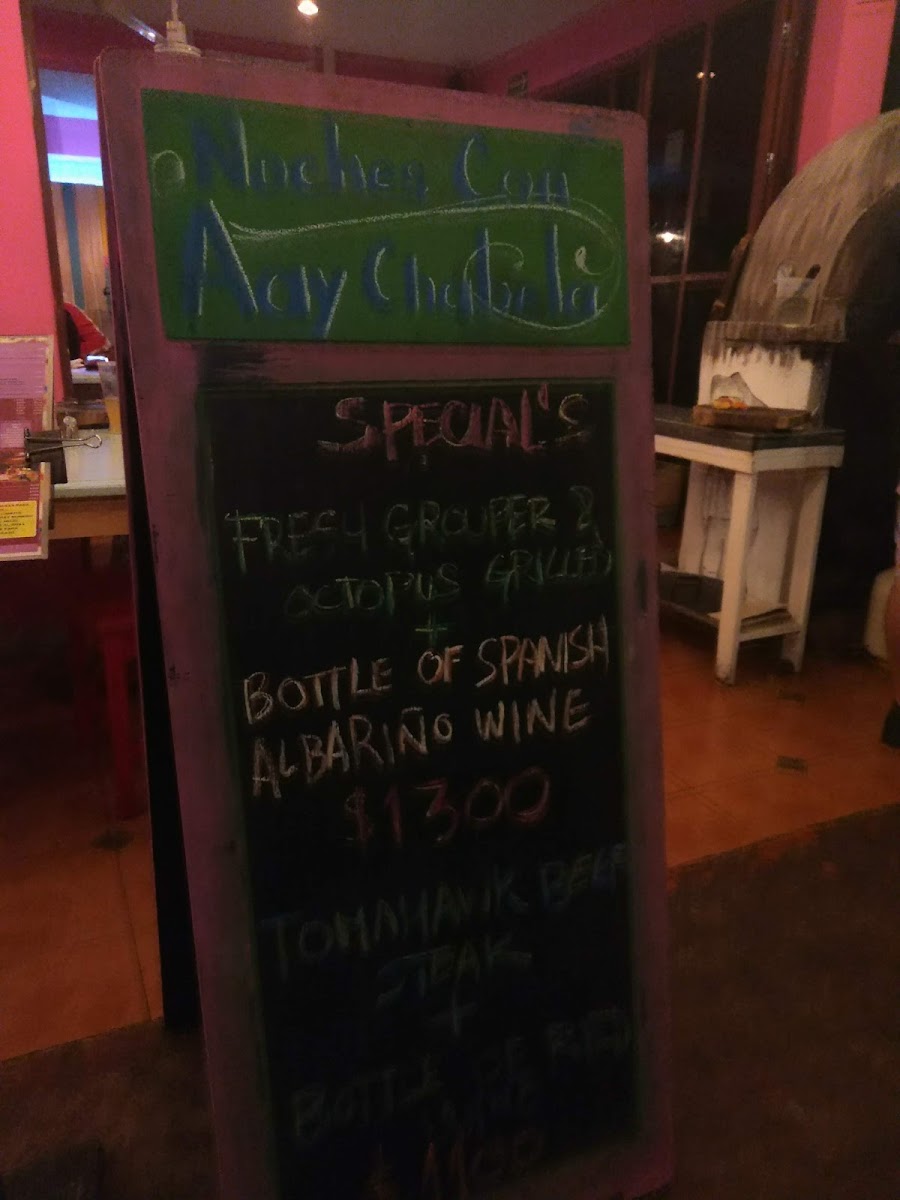 Noches Con
Aay Chabela
SPECIAL'S
FRESH GROUPER &
OCTOPUS GRILLED
+
BOTTLE OF SPANISH
ALBARIÑO WINE
$1300
TOMAHAWK BEEF
STEAK
+
BOTTLE OF
WINE